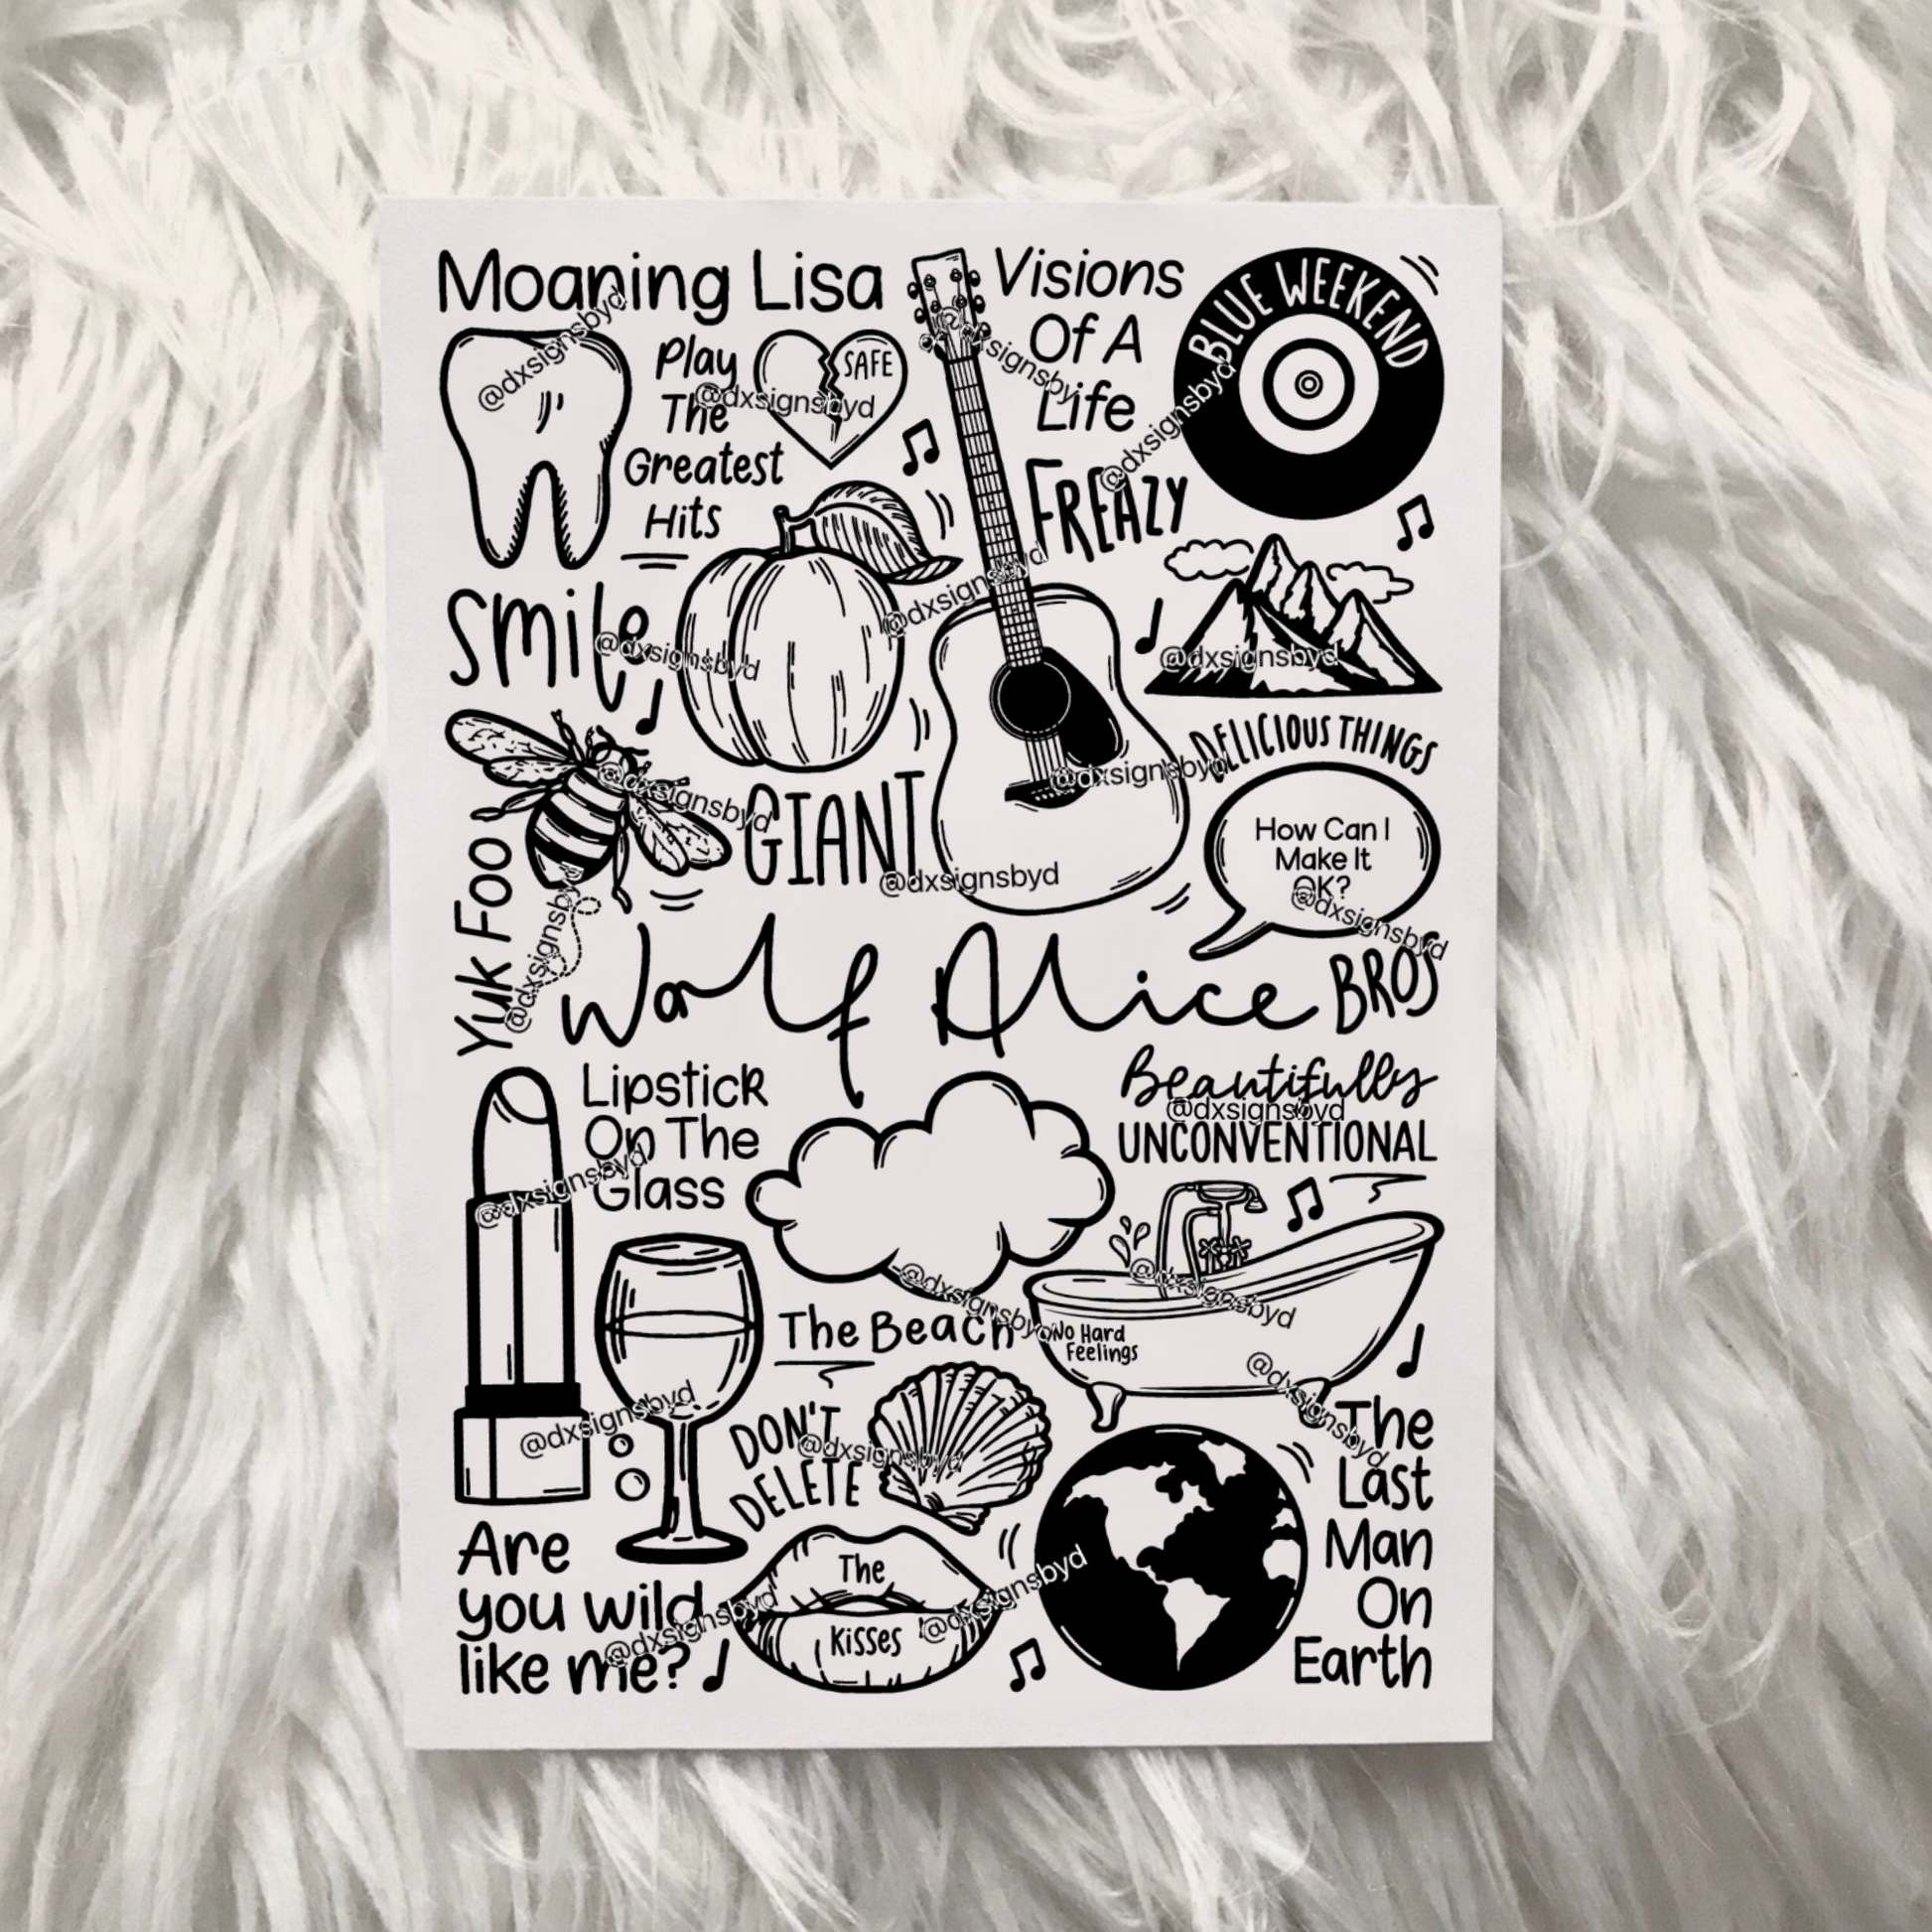 Moaning Lisa
Visions
Of A
Life
BLUE WEEKEND
@dxsignsbyd
Play
The
Greatest
Hits
SAFE
@dxsignsbyd
signsbyd
@dxsignsbyd
FREAZY
smile
@dxsignsbyd
@dxsignsbyd
@dxsignsbyd
DELICIOUS THINGS
@dxsignsbyd
GIANT
@dxsignsbyd
@dxsignsbyd
How Can I
Make It
OK?
@dxsignsbyd
Yuk Foo
@dxsignsbyd
Wolf Alice
BROS
Lipstick
On The
Glass
@dxsignsbyd
Beautifully
@dxsignsbyd
UNCONVENTIONAL
@dxsignsbyd
The Beach
@dxsignsbyd
No Hard
Feelings
@dxsignsbyd
@dxsignsbyd
DON'T
DELETE
@dxsignsbyd
The
Last
Man
On
Earth
Are
you wild
like me?
@dxsignsbyd
The
kisses
@dxsignsbyd